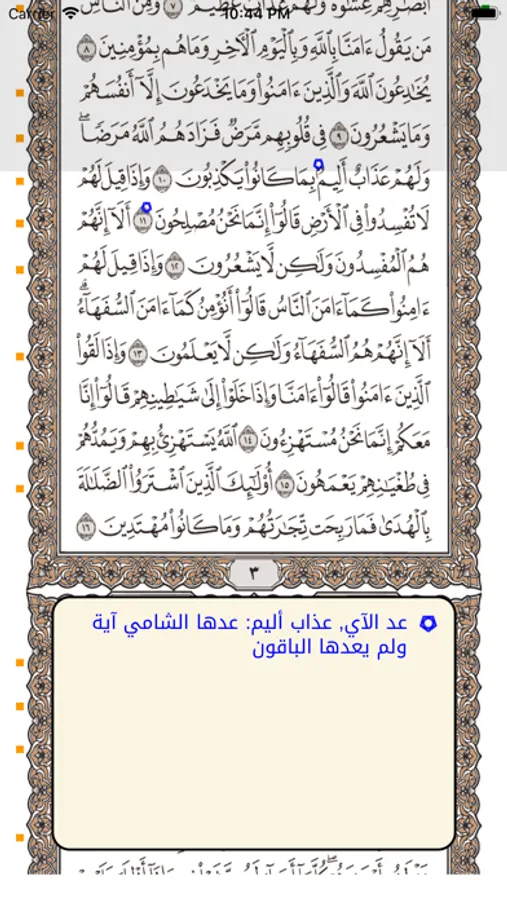 Carrier 10:44 PM
أَبْصَٰرِهِمْ غِشَٰوَةٌ وَلَهُمْ عَذَابٌ عَظِيمٌ ٧ وَمِنَ ٱلنَّاسِ
مَن يَقُولُ ءَامَنَّا بِٱللَّهِ وَبِٱلْيَوْمِ ٱلْءَاخِرِ وَمَا هُم بِمُؤْمِنِينَ ٨
يُخَٰدِعُونَ ٱللَّهَ وَٱلَّذِينَ ءَامَنُوا۟ وَمَا يَخْدَعُونَ إِلَّآ أَنفُسَهُمْ
وَمَا يَشْعُرُونَ ٩ فِى قُلُوبِهِم مَّرَضٌ فَزَادَهُمُ ٱللَّهُ مَرَضًاۖ
وَلَهُمْ عَذَابٌ أَلِيمٌۢ بِمَا كَانُوا۟ يَكْذِبُونَ ١٠ وَإِذَا قِيلَ لَهُمْ
لَا تُفْسِدُوا۟ فِى ٱلْأَرْضِ قَالُوٓا۟ إِنَّمَا نَحْنُ مُصْلِحُونَ ١١ أَلَآ إِنَّهُمْ
هُمُ ٱلْمُفْسِدُونَ وَلَٰكِن لَّا يَشْعُرُونَ ١٢ وَإِذَا قِيلَ لَهُمْ
ءَامِنُوا۟ كَمَآ ءَامَنَ ٱلنَّاسُ قَالُوٓا۟ أَنُؤْمِنُ كَمَآ ءَامَنَ ٱلسُّفَهَآءُۗ
أَلَآ إِنَّهُمْ هُمُ ٱلسُّفَهَآءُ وَلَٰكِن لَّا يَعْلَمُونَ ١٣ وَإِذَا لَقُوا۟
ٱلَّذِينَ ءَامَنُوا۟ قَالُوٓا۟ ءَامَنَّا وَإِذَا خَلَوْا۟ إِلَىٰ شَيَٰطِينِهِمْ قَالُوٓا۟ إِنَّا
مَعَكُمْ إِنَّمَا نَحْنُ مُسْتَهْزِءُونَ ١٤ ٱللَّهُ يَسْتَهْزِئُ بِهِمْ وَيَمُدُّهُمْ
فِى طُغْيَٰنِهِمْ يَعْمَهُونَ ١٥ أُو۟لَٰٓئِكَ ٱلَّذِينَ ٱشْتَرَوُا۟ ٱلضَّلَٰلَةَ
بِٱلْهُدَىٰ فَمَا رَبِحَت تِّجَٰرَتُهُمْ وَمَا كَانُوا۟ مُهْتَدِينَ ١٦
٣
عد الآي, عذاب أليم: عدها الشامي آية
ولم يعدها الباقون